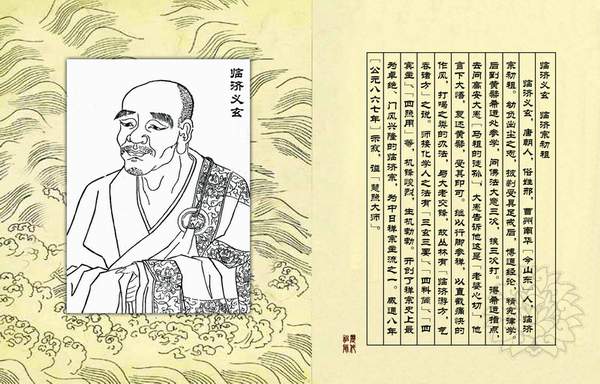 临济义玄
临济义玄　临济宗初祖
临济义玄，唐朝人，俗姓邢，曹州南华〔今山东〕人，临济
宗初祖。幼负出尘之志，披剃受具足戒后，博通经论，精究律学
后到黄檗希运处参学，问佛法大意三次，挨三次打。得希运指点，
去问高安大愚〔马祖的徒孙〕，大愚告诉他这是「老婆心切」，他
言下大悟，复还黄檗，受其印可。继以行脚参禅，以直截痛快的
作风，打喝之类的办法，与大老交锋，故丛林有「临济游方，气
吞诸方」之说。师接化学人之法有「三玄三要」、「四料简」、「四
宾主」、「四照用」等，机锋峻烈，生机勃勃。开创了禅宗史上最
为卓绝、门风兴隆的临济宗，为中日禅宗主流之一。咸通八年
〔公元八六七年〕示寂，谥「慧照大师」。